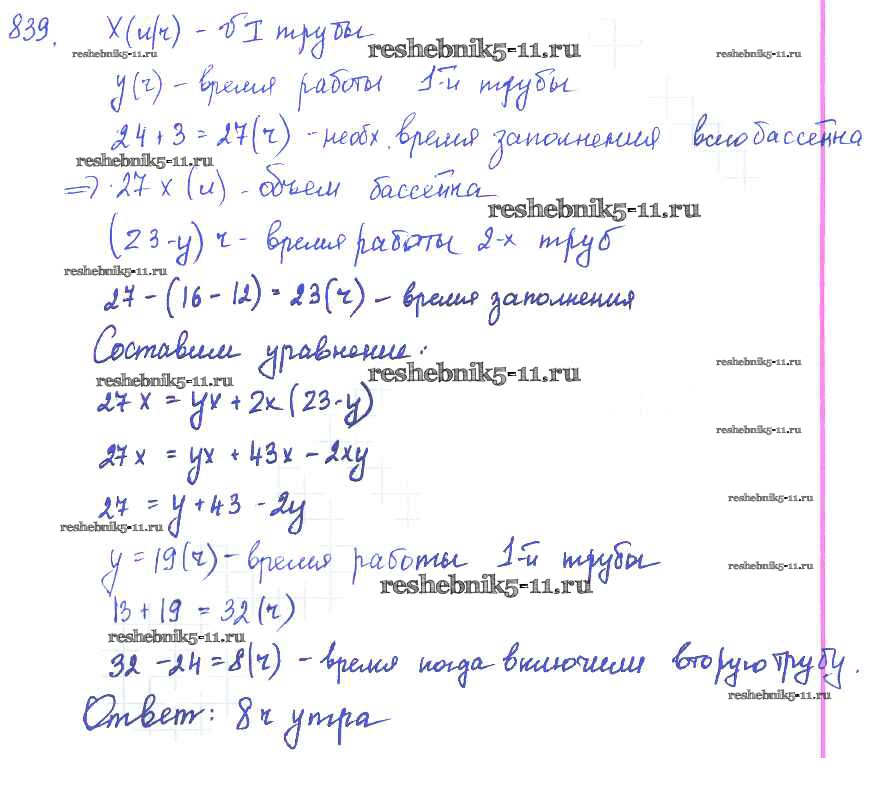 839. х(л/ч) - v I трубы
reshebnik5-11.ru reshebnik5-11.ru reshebnik5-11.ru
у(ч) - время работы 1-й трубы
24 + 3 = 27(ч) - необх. время заполнения всего бассейна
reshebnik5-11.ru
=> 27 х (л) - объем бассейна
reshebnik5-11.ru
(23-у) ч - время работы 2-х труб
reshebnik5-11.ru
27 - (16 - 12) = 23(ч) - время заполнения
Составим уравнение:
reshebnik5-11.ru reshebnik5-11.ru reshebnik5-11.ru
27х = ух + 2х(23-у)
reshebnik5-11.ru
27х = ух + 43х - 2ху
27 = у + 43 - 2у
reshebnik5-11.ru reshebnik5-11.ru
у = 19(ч) - время работы 1-й трубы
reshebnik5-11.ru reshebnik5-11.ru
13 + 19 = 32(ч)
reshebnik5-11.ru
32 - 24 = 8(ч) - время когда включили вторую трубу.
reshebnik5-11.ru
Ответ: 8 ч утра